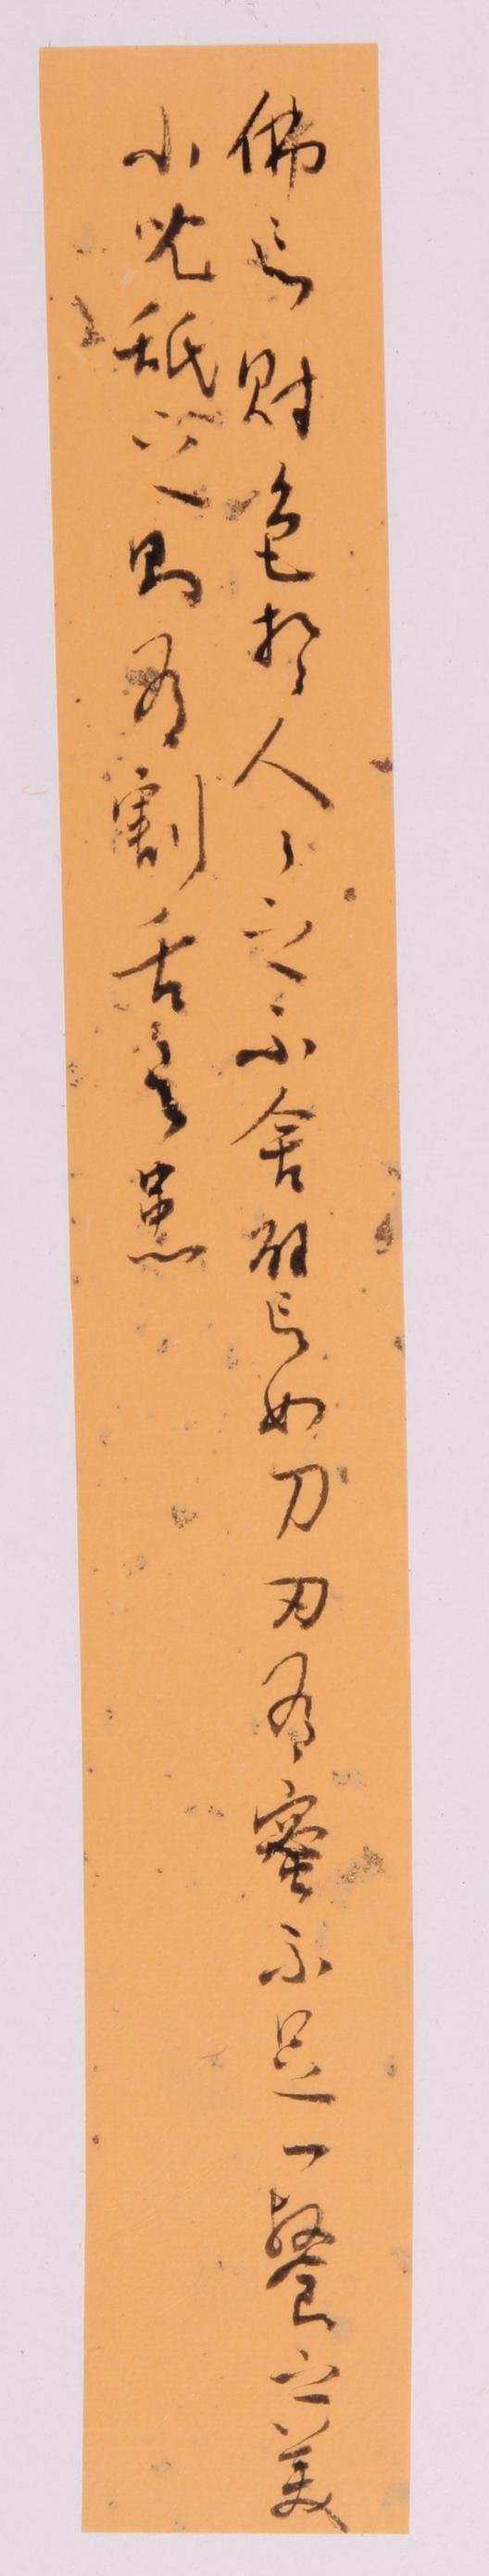 佛言財色於人人之不舍譬如刀刃有蜜不足一餐之美
小兒舐之則有割舌之患